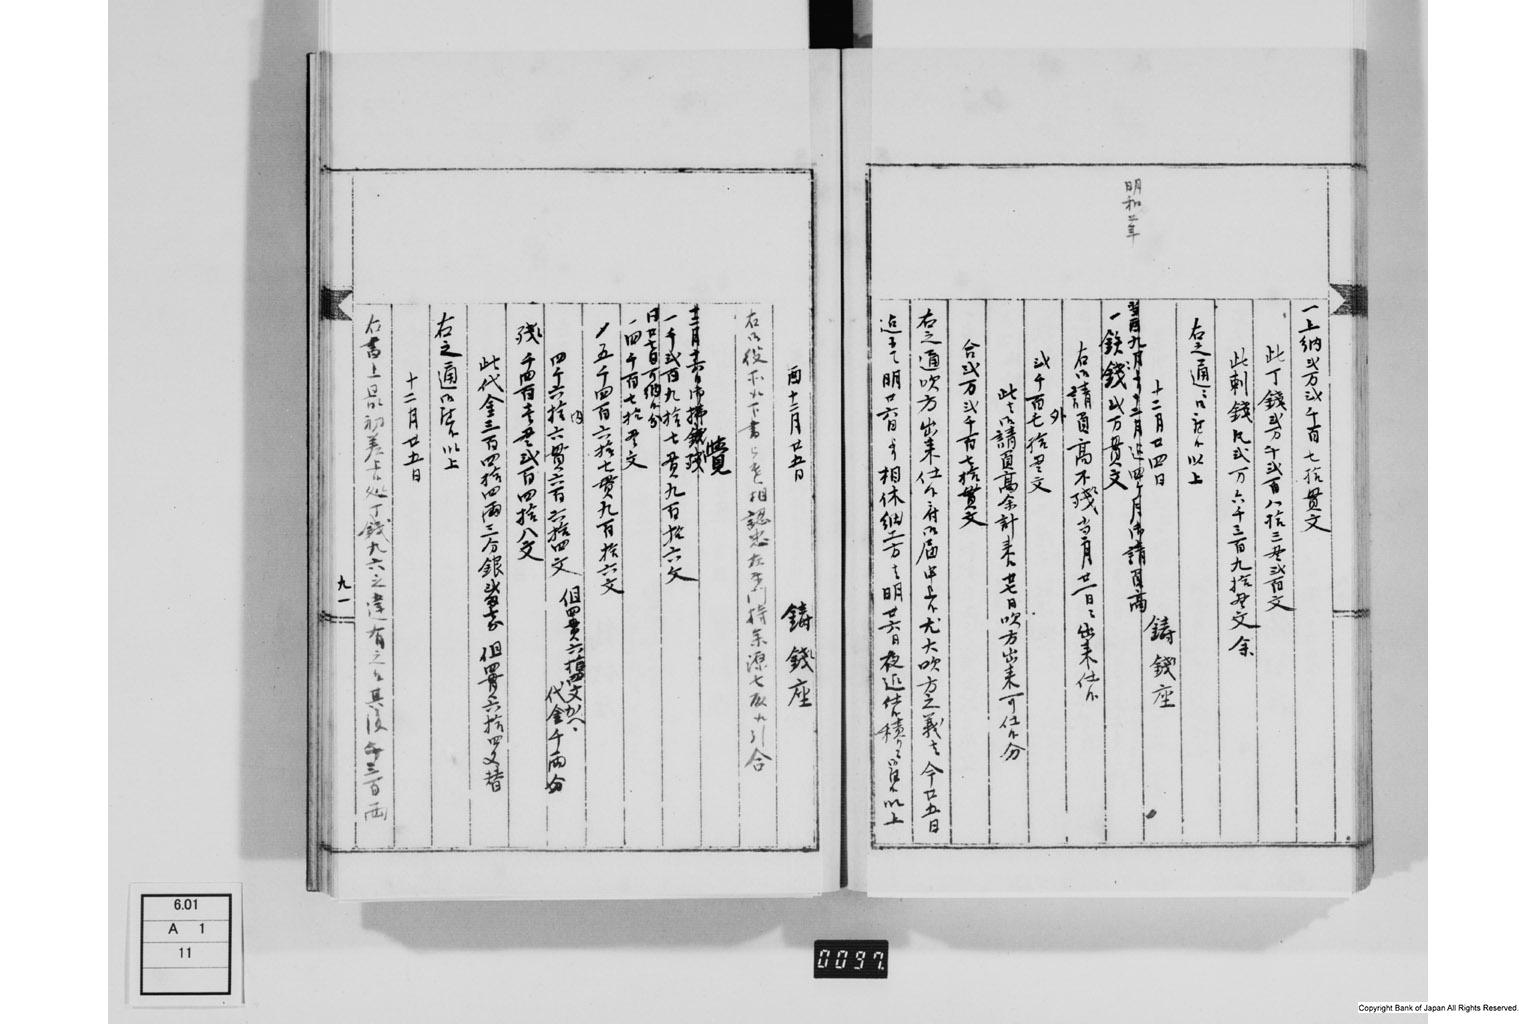 明和二年
一上納弐万弐千百七拾貫文
此丁銭弐万千弐百八拾三貫弐百文
此刺銭凡弐万六千三百九拾貫文余
右之通
以上
十二月廿四日
鋳銭座
当酉九月ゟ十二月迄四ケ月御請負高
一鉄銭弐万貫文
右御請負高不残当月廿一日出来仕候
外
弐千百七拾貫文
此者御請負高余計来ル廿七日吹方出来可仕候分
合弐万弐千百七拾貫文
右之通吹方出来仕候ニ付御届申上候尤大吹方之義者今廿五日
迄ニて明廿六日ゟ相休細工方者明廿六日夜迄
以上
酉十二月廿五日
鋳銭座
右御役所
引合
覚
十二月廿六日御払銭残
一千弐百九拾七貫九百拾六文
同廿七日可納候分
一四千百七拾貫文
〆五千四百六拾七貫九百拾六文
内
四千六拾六貫六百六拾四文
但四貫六拾四文かへ
代金千両分
残千四百壱貫弐百四拾八文
此代金三百四拾四両三分銀
但四貫六拾四文替
右之通御座候以上
十二月廿五日
右書上最初差上候処丁銭九六之違有之候其後
三百両
九一
6.01
A 1
11
0097
Copyright Bank of Japan All Rights Reserved.